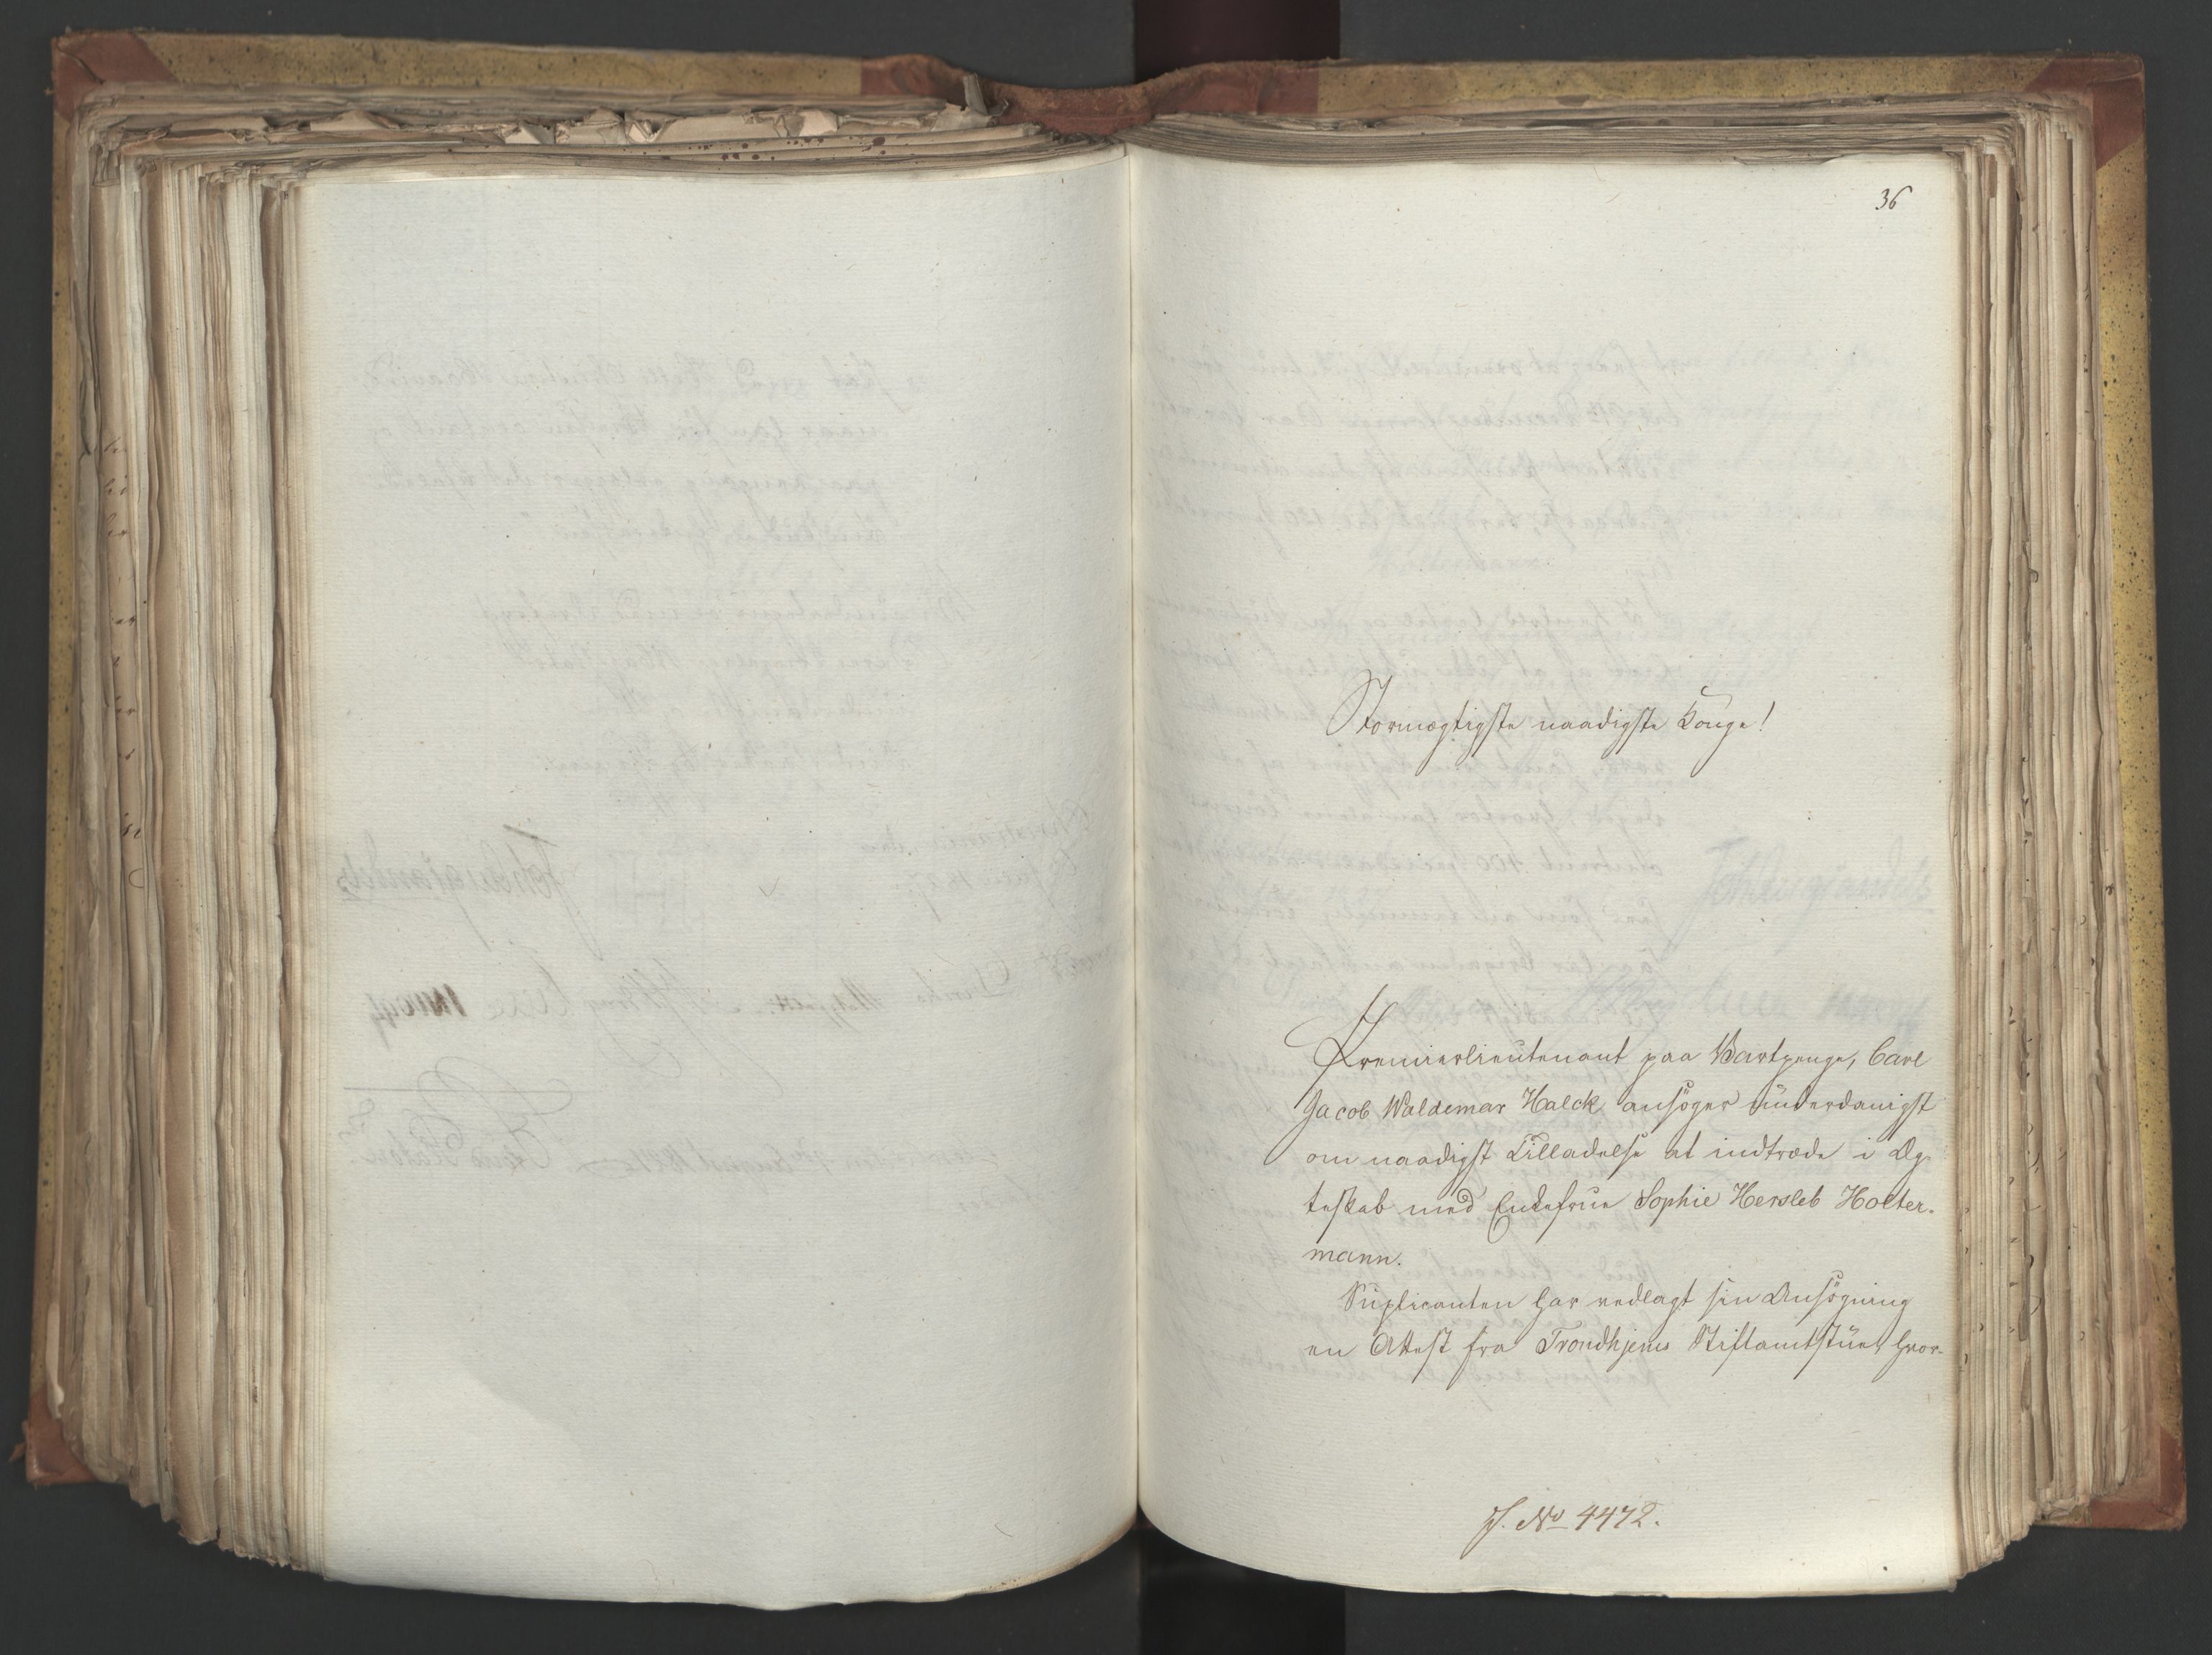 36
Stormægtigste naadigste Konge!
Premierlieutenant paa Vartpenge, Carl
Jacob Waldemar Halck ansøger underdanigst
om naadigst Tilladelse at indtræde i Æg-
teskab med Enkefrue Sophie Hersleb Holter-
mann.
Suplicanten har vedlagt sin Ansøgning
en Attest fra Trondhjems Stiftamtstue, hvor-
J. No 4472.